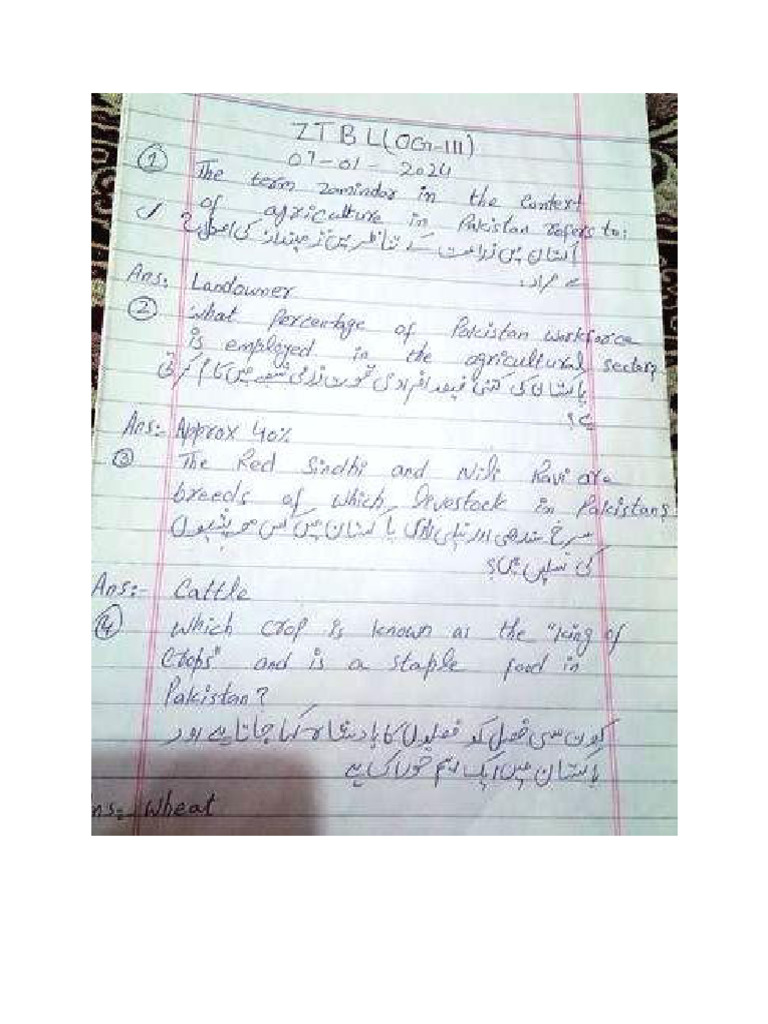 ZTBL(OG-III)
07-01-2024
① The term zamindar in the context
of agriculture in Pakistan refers to:
پاکستان میں زراعت کے تناظر میں زمیندار کی اصطلاح
سے مراد:
Ans: Landowner
② What Percentage of Pakistan workforce
is employed in the agricultural sector?
پاکستان کی کتنی فیصد افرادی قوت زرعی شعبہ میں کام کرتی
ہے؟
Ans:- Approx 40%
③ The Red Sindhi and Nili Ravi are
breeds of which livestock in Pakistan?
سرخ سندھی اور نیلی راوی پاکستان میں کس مویشیوں
کی نسلیں ہیں؟
Ans:- Cattle
④ Which crop is known as the "King of
Crops" and is a staple food in
Pakistan?
کون سی فصل کو فصلوں کا بادشاہ کہا جاتا ہے اور
پاکستان میں ایک اہم خوراک ہے
ns:- Wheat